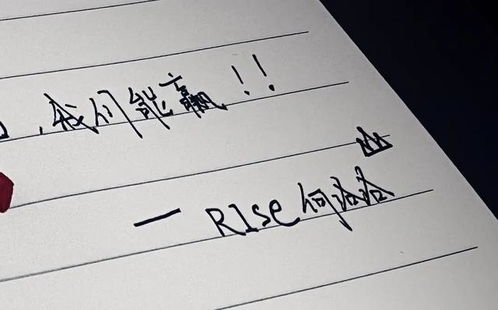 ，我们能赢！！
— Rise何洛洛